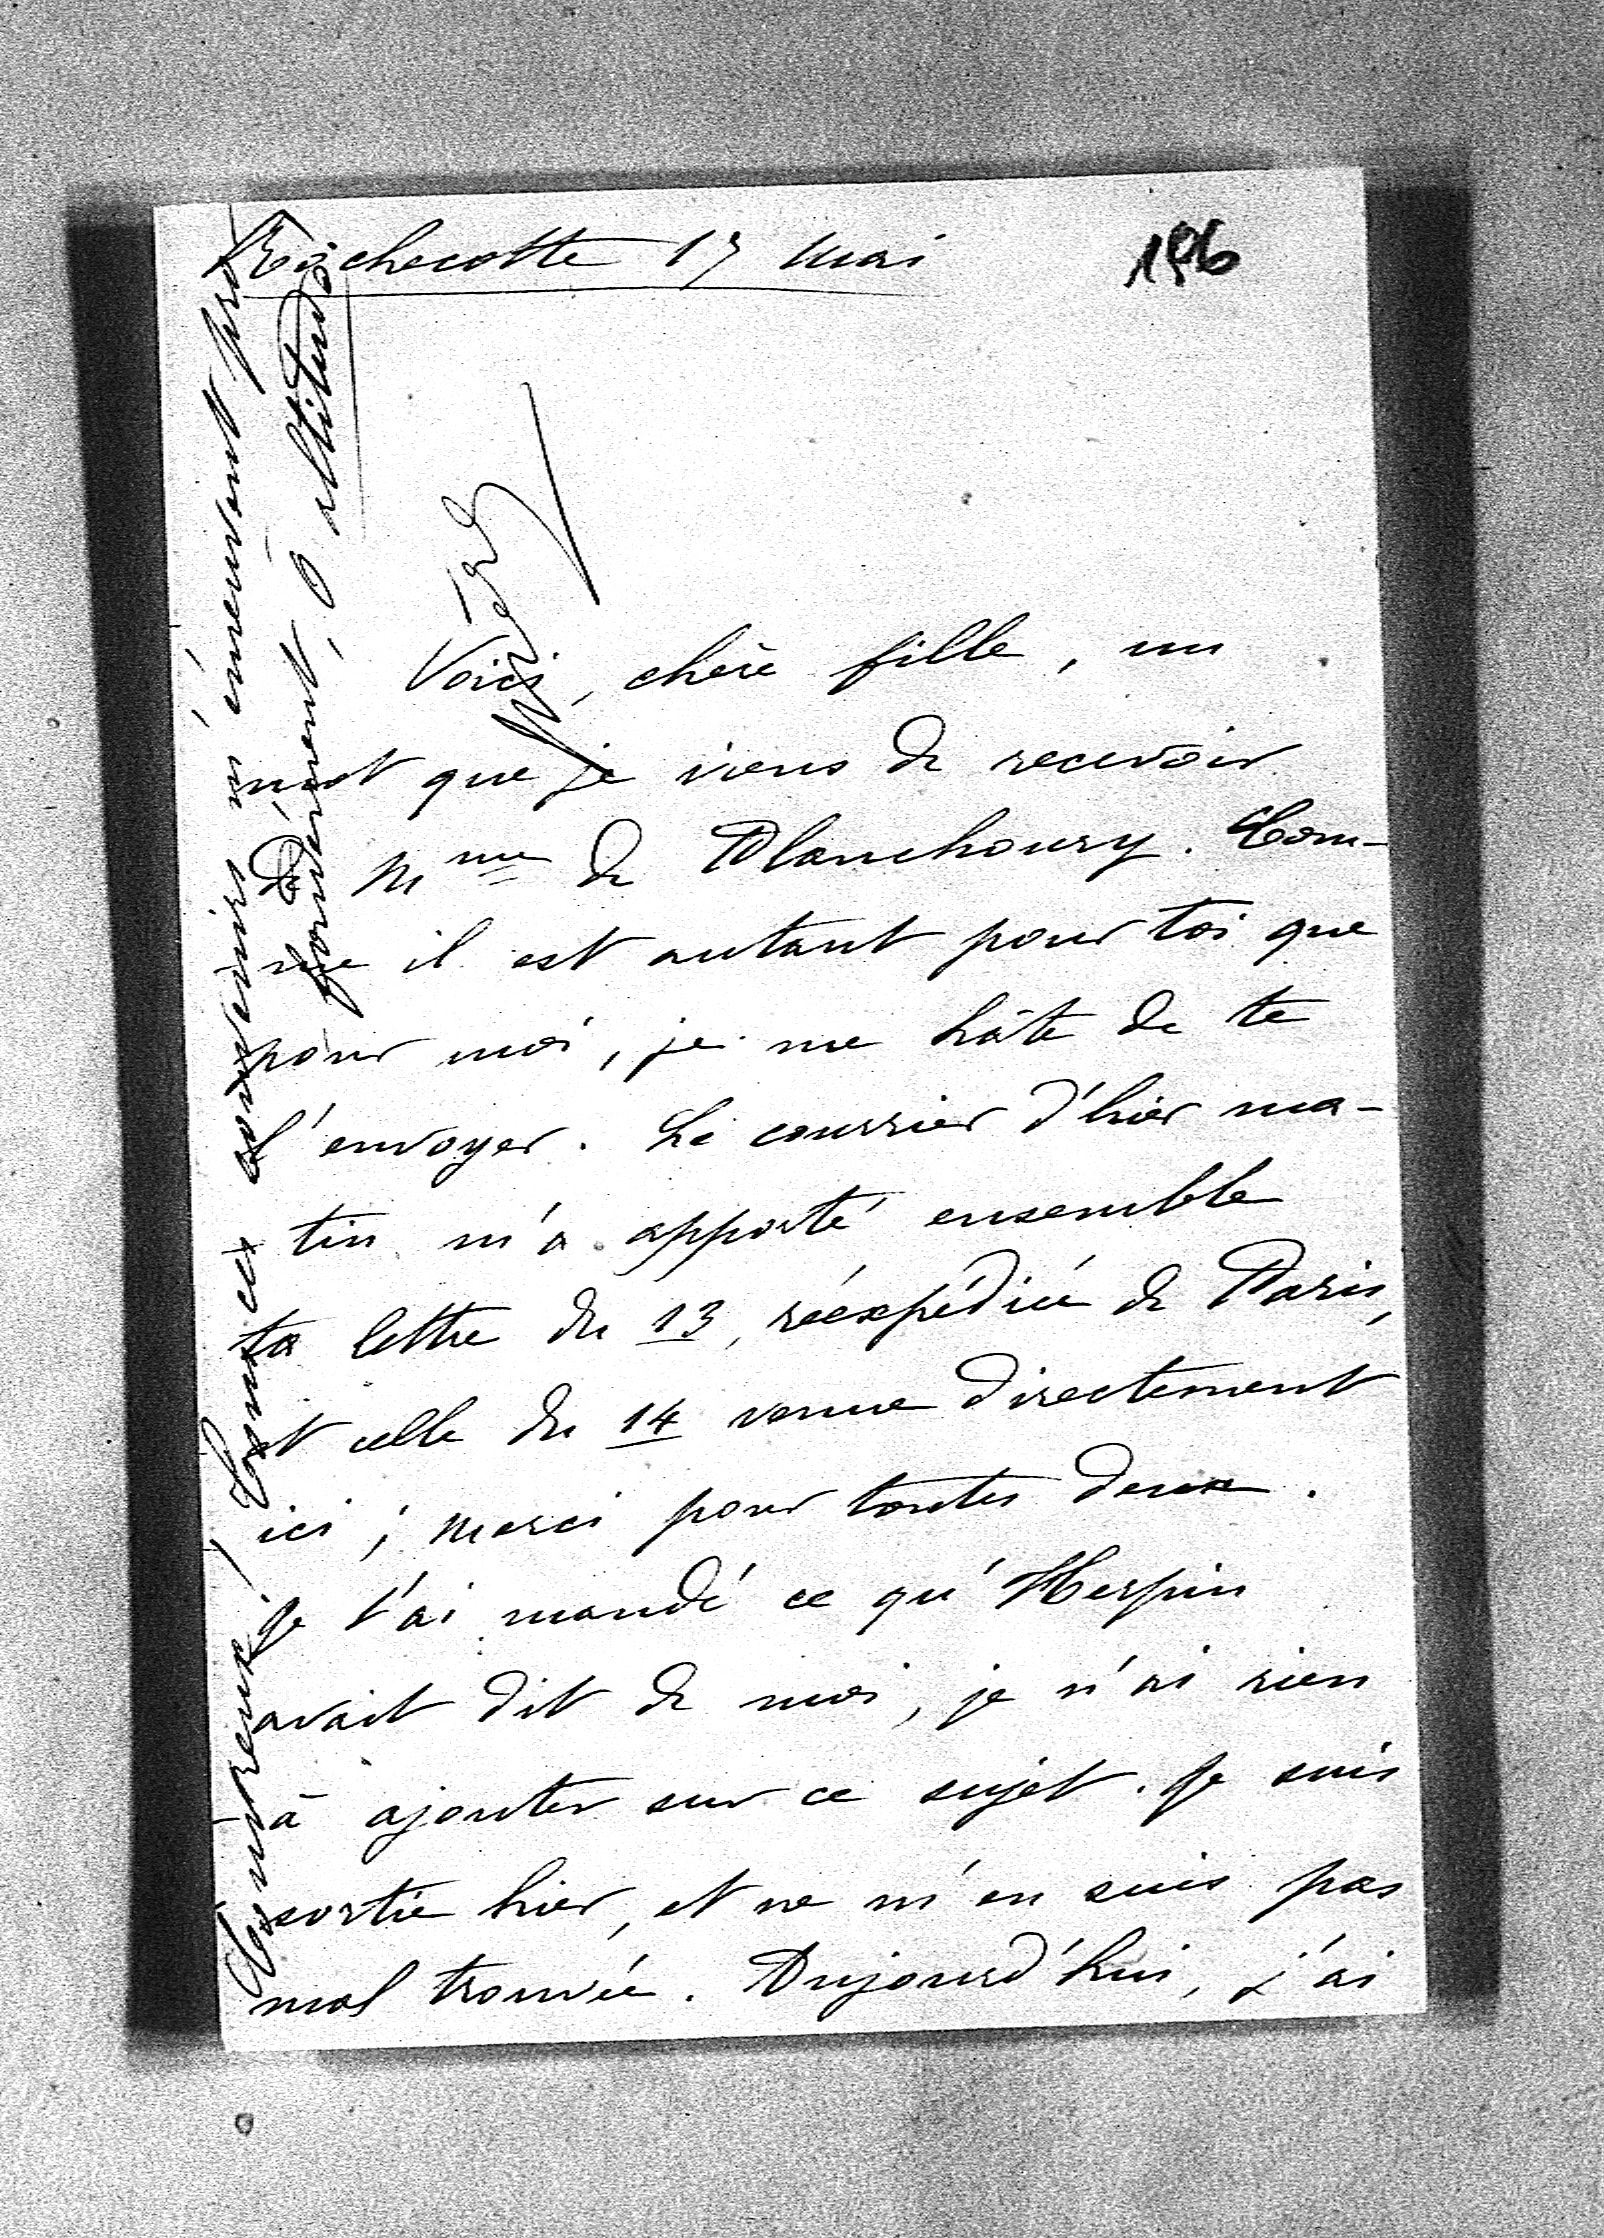 Rochecotte 17 Mai
196
Voici, chère fille, un
mot que je viens de recevoir
de Mme de Planchoury. Com-
me il est autant pour toi que
pour moi, je me hâte de te
l'envoyer. Le courrier d'hier ma-
tin m'a apporté ensemble
ta lettre du 13, réexpédiée de Paris,
et celle du 14 venue directement
ici ; merci pour toutes deux.
Je t'ai mandé ce qu'Herpin
avait dit de moi, je n'ai rien
à ajouter sur ce sujet. Je suis
sortie hier, et ne m'en suis pas
mal trouvée. Aujourd'hui, j'ai
Comme ces souvenirs m'émeuvent pro-
fondément, ô altitudo